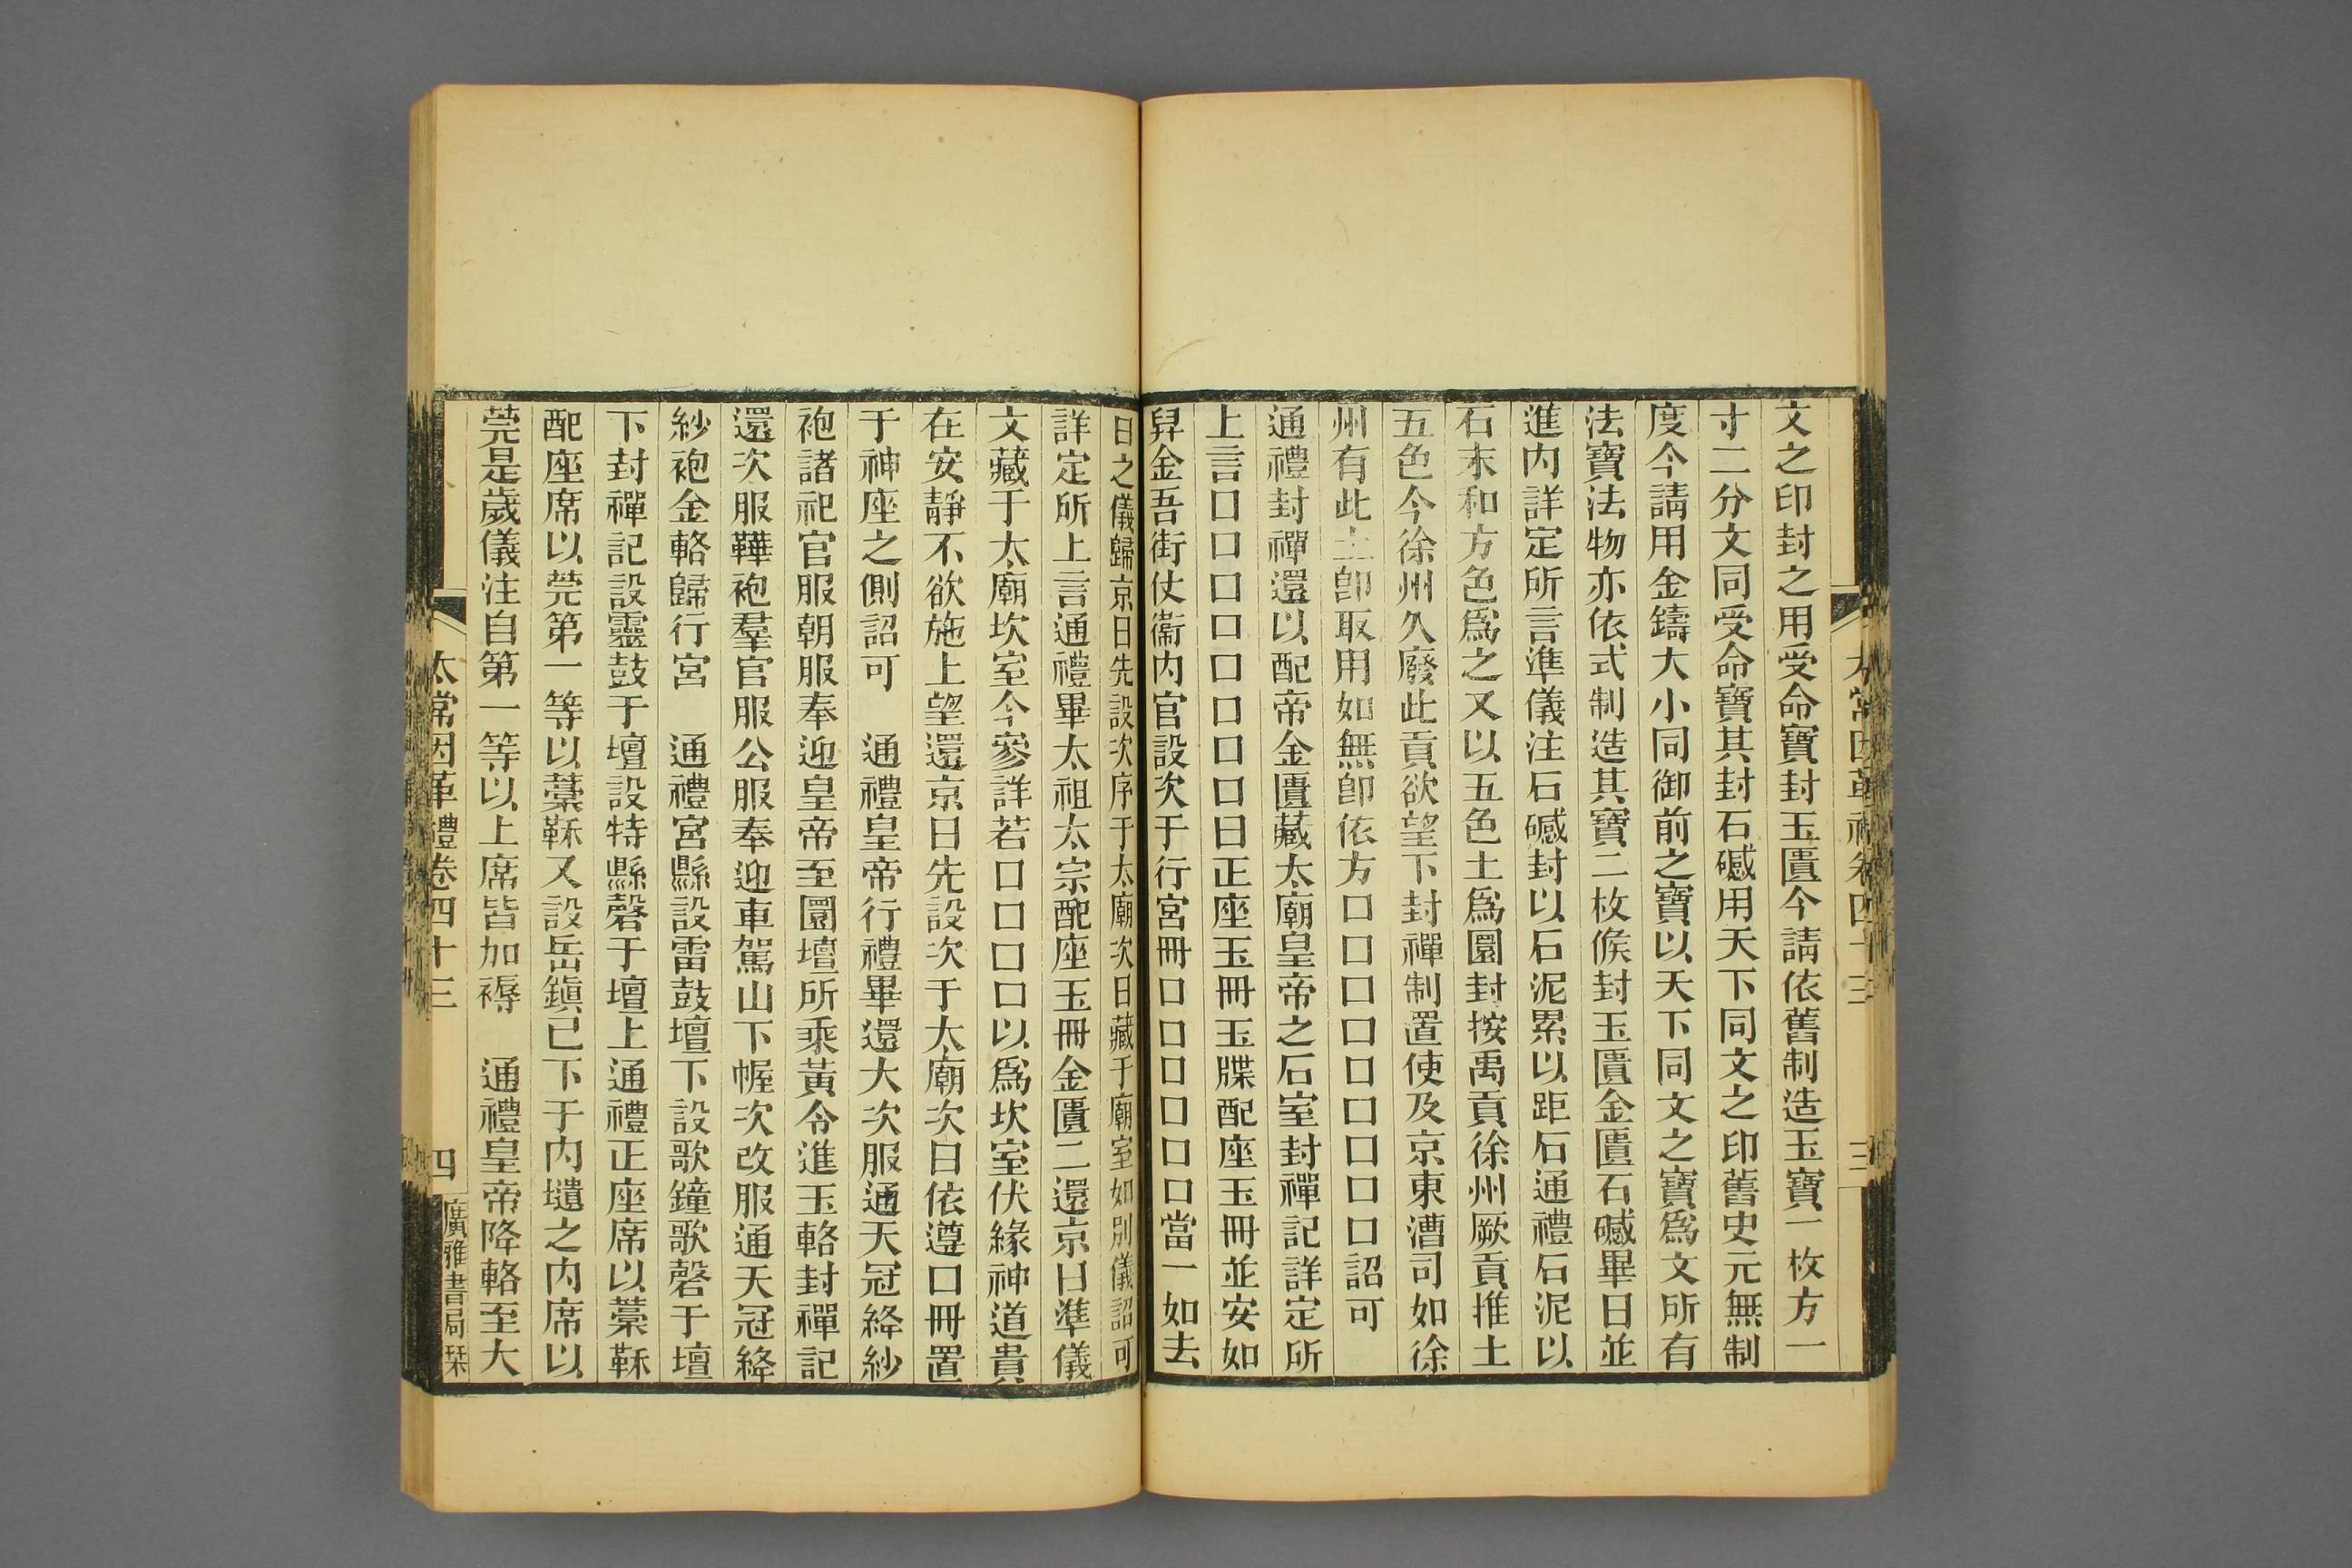 文之印封之用受命寶封玉匱今請依舊制造玉寶一枚方一
寸二分文同受命寶其封石䃭用天下同文之印舊史元無制
度今請用金鑄大小同御前之寶以天下同文之寶爲文所有
法寶法物亦依式制造其寶二枚俟封玉匱金匱石䃭畢日並
進内詳定所言準儀注石䃭封以石泥累以距石通禮石泥以
石末和方色爲之又以五色土爲圜封按禹貢徐州厥貢推土
五色今徐州久廢此貢欲望下封禪制置使及京東漕司如徐
州有此土卽取用如無卽依方口口口口口口口口詔可
通禮封禪還以配帝金匱藏太廟皇帝之石室封禪記詳定所
上言口口口口口口口口曰正座玉冊玉牒配座玉冊並安如
舁金吾街仗衞内官設次于行宮冊口口口口口口當一如去
日之儀歸京日先設次序于太廟次日藏于廟室如別儀詔可
詳定所上言通禮畢太祖太宗配座玉冊金匱二還京日準儀
文藏于太廟坎室今參詳若口口口口以爲坎室伏緣神道貴
在安靜不欲施上望還京日先設次于太廟次日依遵口冊置
于神座之側詔可　通禮皇帝行禮畢還大次服通天冠絳紗
袍諸祀官服朝服奉迎皇帝至圜壇所乘黃令進玉輅封禪記
還次服鞾袍羣官服公服奉迎車駕山下幄次改服通天冠絳
紗袍金輅歸行宮　通禮宮縣設雷鼓壇下設歌鐘歌磬于壇
下封禪記設靈鼓于壇設特縣磬于壇上通禮正座席以藁秫
配座席以莞第一等以藁秫又設岳鎮已下于内壝之内席以
莞是歲儀注自第一等以上席皆加褥　通禮皇帝降輅至大
太常因革禮卷四十三
四
廣雅書局栞